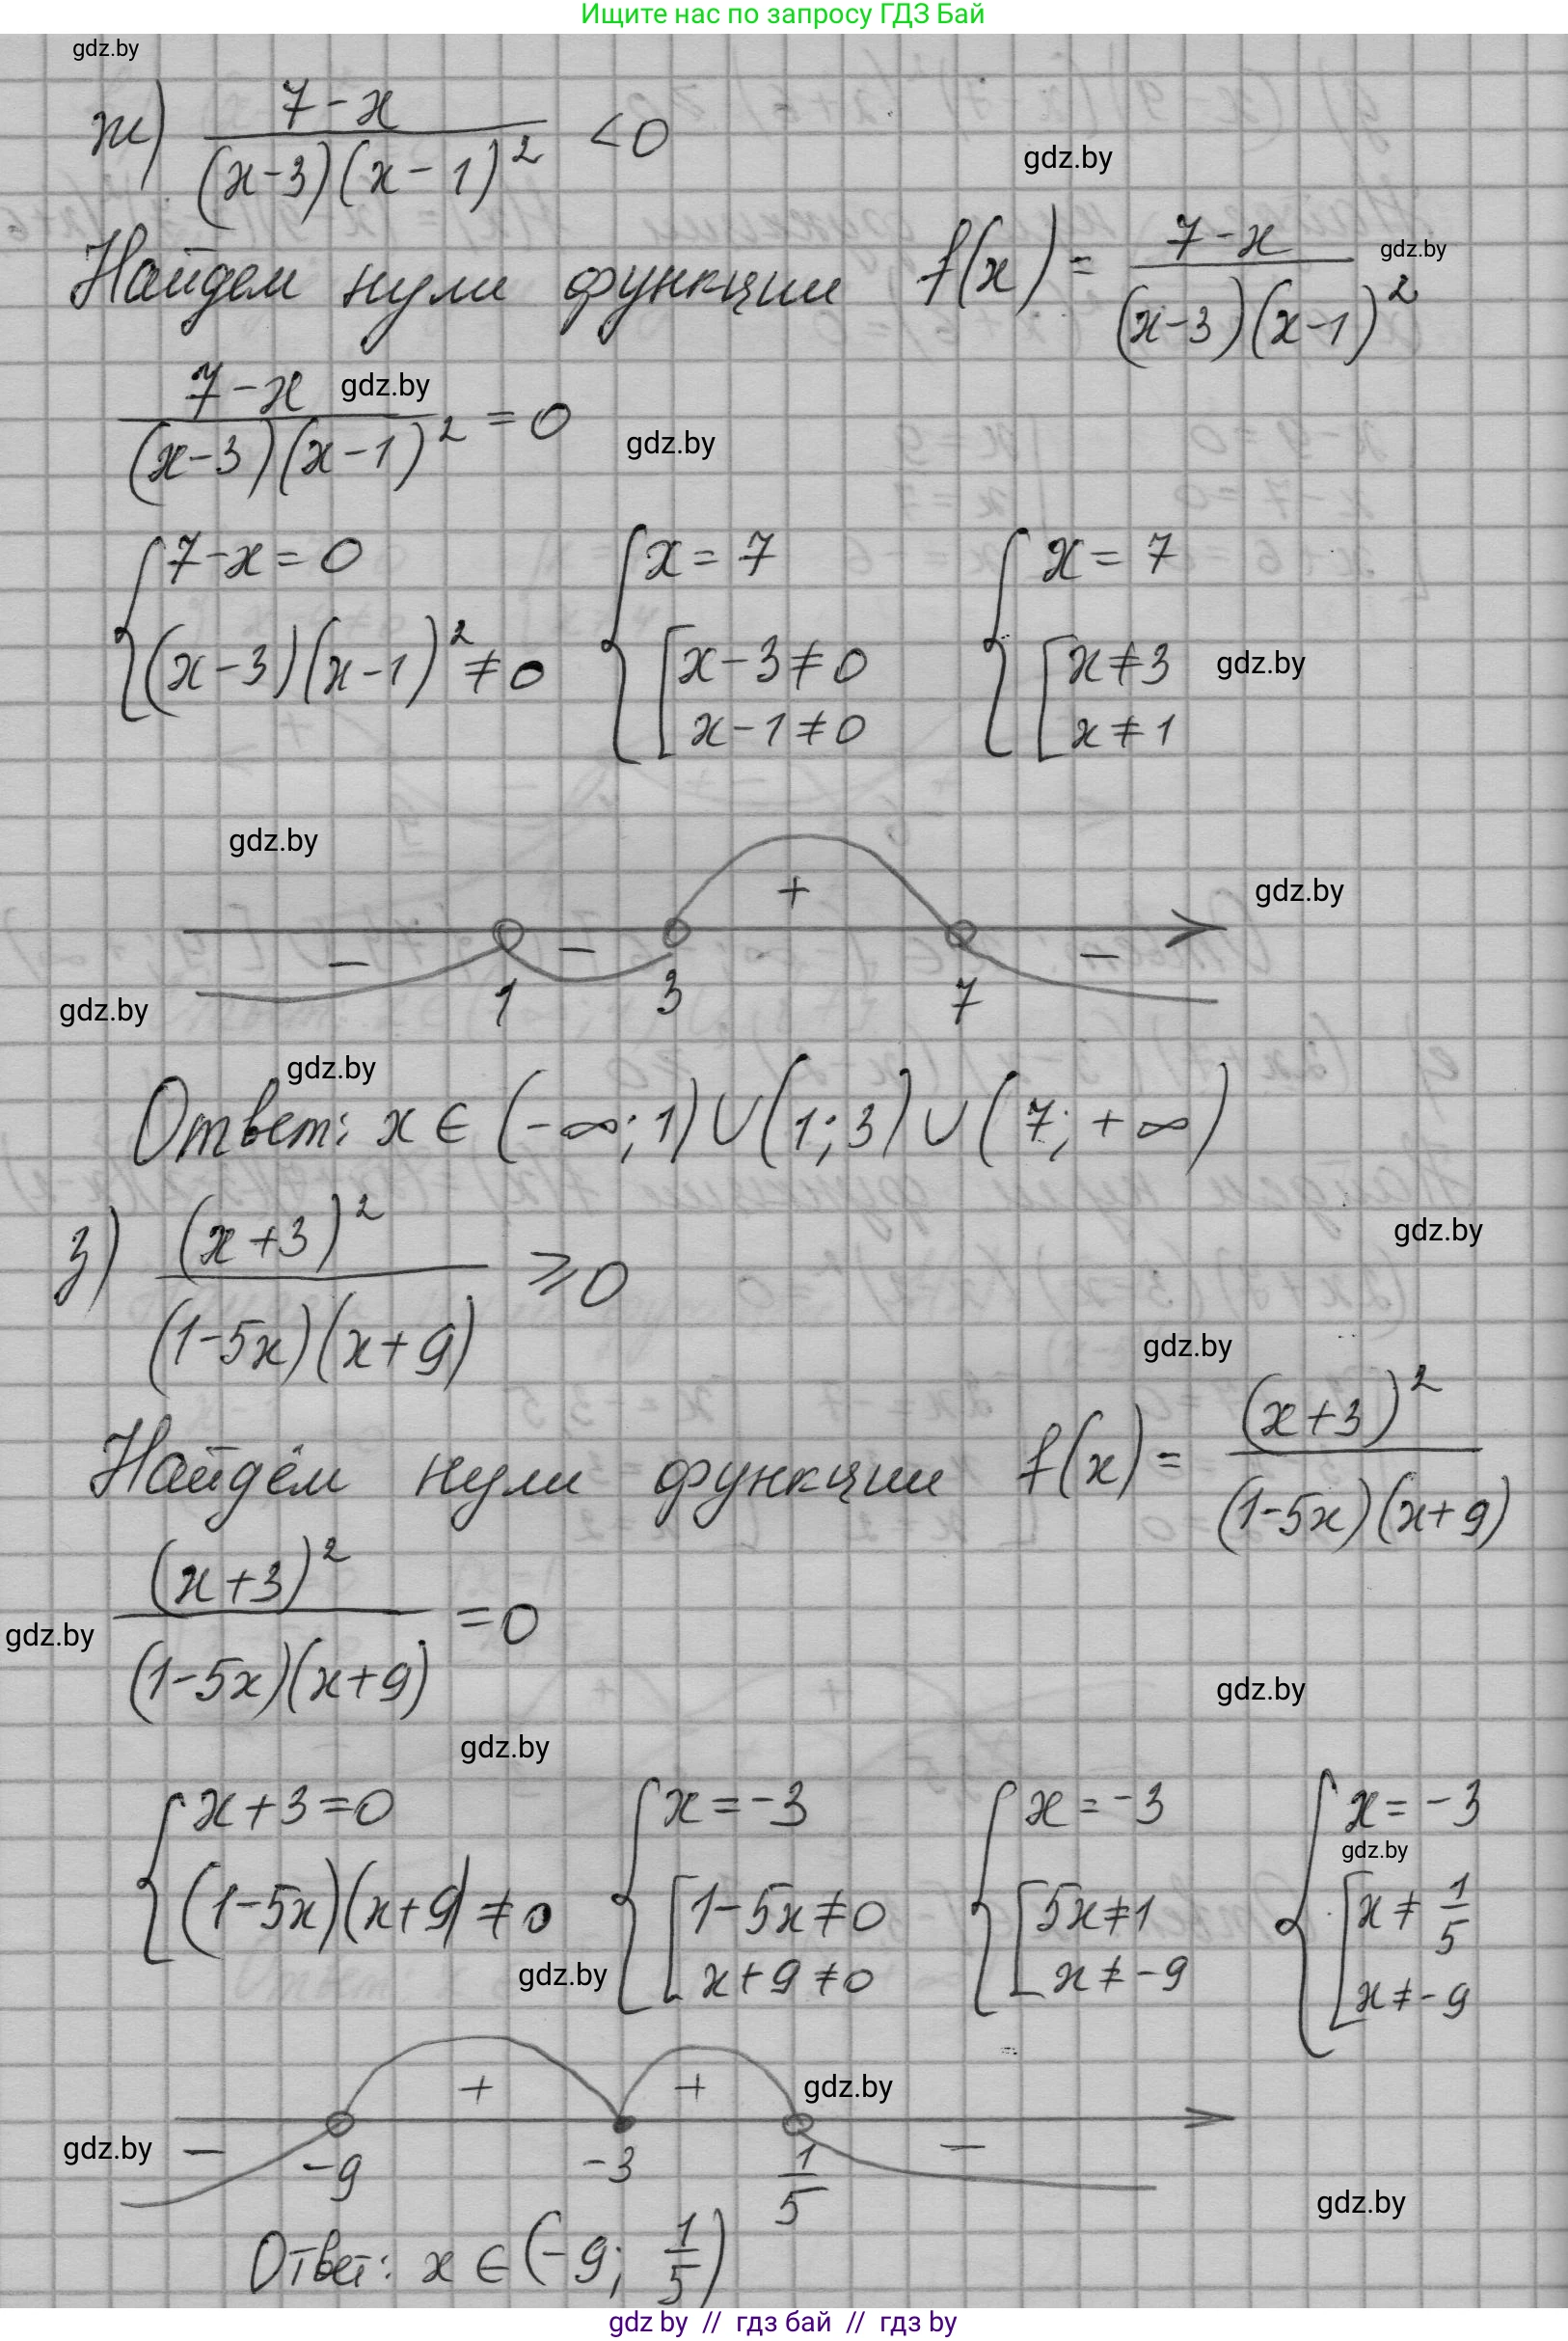 Ищите нас по запросу ГДЗ Бай
gdz.by
ж) (7-x)/((x-3)(x-1)²) <0
gdz.by
Найдем нули функции f(x) = (7-x)/((x-3)(x-1)²)
gdz.by
(7-x)/((x-3)(x-1)²) = 0
gdz.by
gdz.by
{ 7-x = 0 { x = 7 { x = 7
(x-3)(x-1)² ≠ 0 [ x-3 ≠ 0 [ x ≠ 3
x-1 ≠ 0 x ≠ 1
gdz.by
gdz.by
gdz.by
+
- - -
1 3 7
gdz.by
gdz.by
Ответ: x ∈ (-∞; 1) ∪ (1; 3) ∪ (7; +∞)
з) (x+3)²/((1-5x)(x+9)) ⩾ 0
gdz.by
gdz.by
Найдём нули функции f(x) = (x+3)²/((1-5x)(x+9))
(x+3)²/((1-5x)(x+9)) = 0
gdz.by
gdz.by
gdz.by
{ x+3 = 0 { x = -3 { x = -3 { x = -3
gdz.by
(1-5x)(x+9) ≠ 0 [ 1-5x ≠ 0 [ 5x ≠ 1 [ x ≠ 1/5
x+9 ≠ 0 x ≠ -9 x ≠ -9
gdz.by
+ + gdz.by
gdz.by - -
-9 -3 1/5
gdz.by
Ответ: x ∈ (-9; 1/5)
gdz by // гдз бай // гдз by